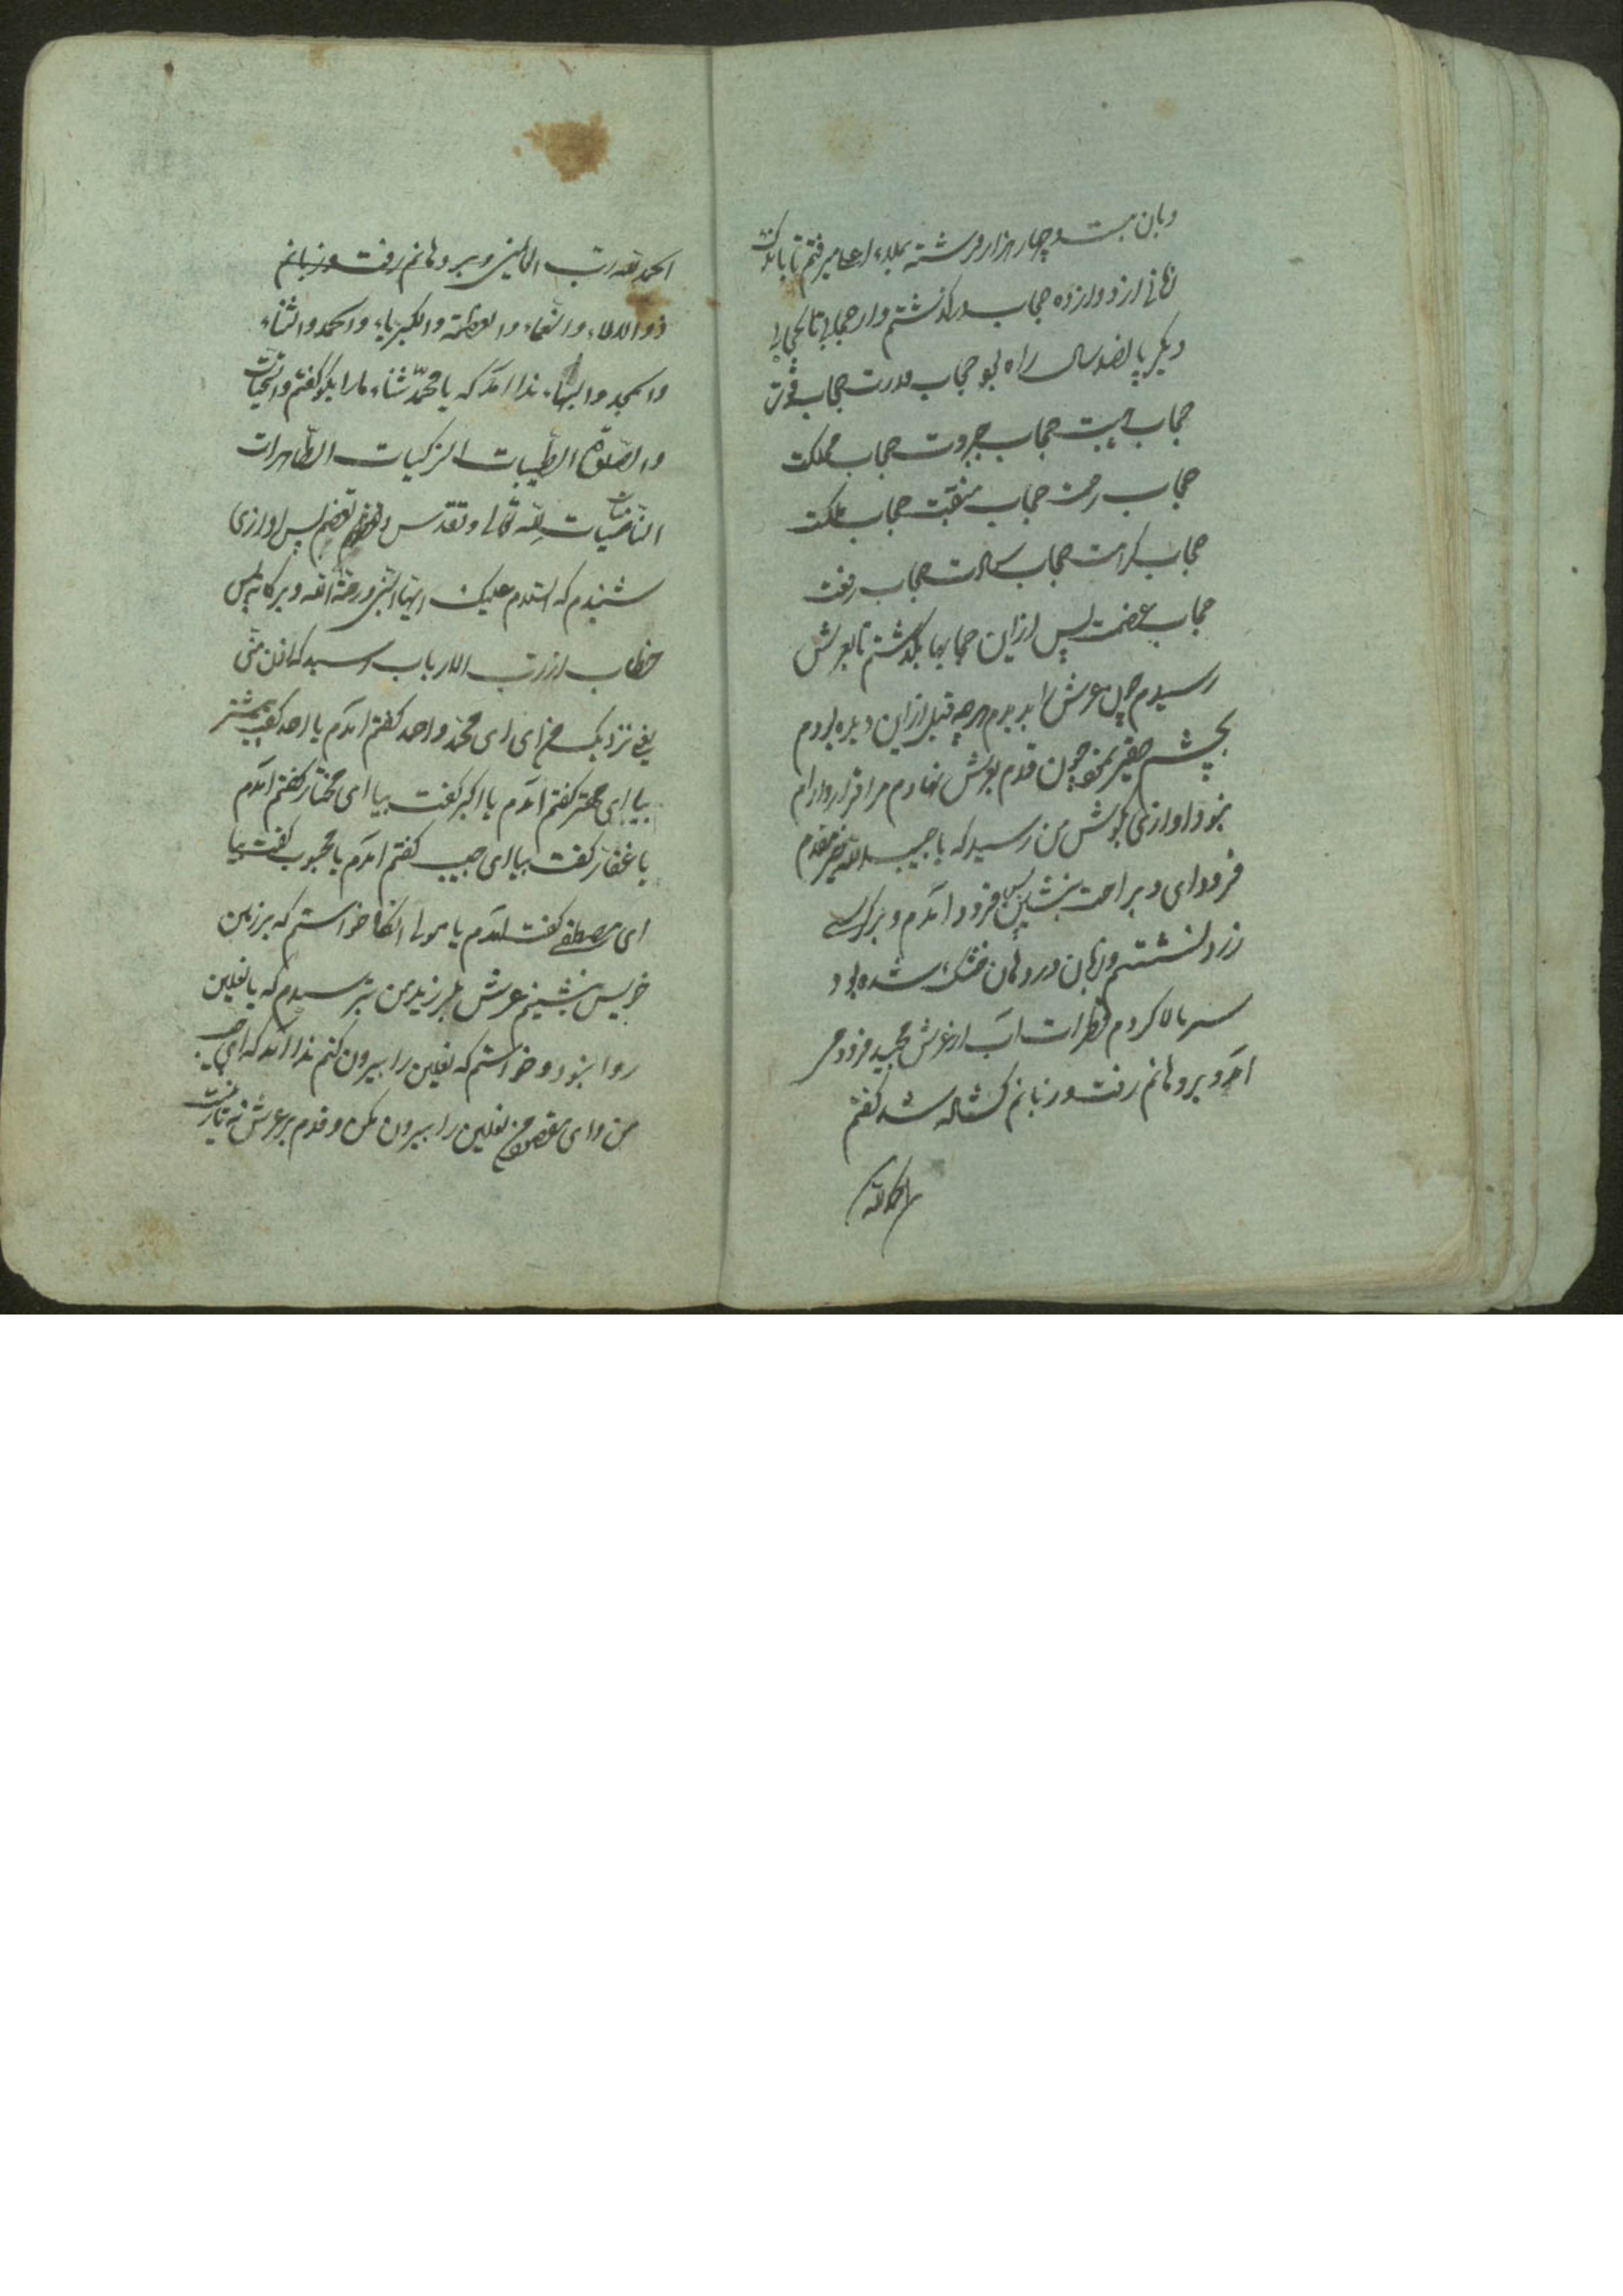 و بان بیست و چهار هزار فرشته بملاء اعلا میرفتم تا باندک
زمانی از دوازده حجاب درکذشتم و از حجابی تا حجابی
دیکر پانصد ساله راه بود حجاب قدرت حجاب قوت
حجاب هیبت حجاب جبروت حجاب مملکت
حجاب رحمت حجاب منقبت حجاب ملکت
حجاب کرامت حجاب رسالت حجاب رفعت
حجاب عضمت پس از این حجابها بکذشتم تا بعرش
رسیدم چون عرش را بدیدم هرچه قبل از این دیده بودم
بچشم حقیر نمود چون قدم بعرش نهادم مرا قرار و ارام
نبود اوازی بکوش من رسید که یا حبیب الله خیر مقدم
فرود ای و براحت بنشین پس فرود آمدم و بر کرسی
زرد نشستم و زبان در دهان خشک شده بود
سر بالا کردم قطرات آب از عرش مجید فرود
آمد و بر دهانم رفت و زبانم کشاده شد کفتم
الحمد لله
الحمد لله رب العالمین و بر دهانم رفت و زبانم
ذو الالاء و النعماء و العظمة و الکبریاء و الحمد و الثناء
و المجد و البهاء ندا آمد که یا محمد ثناء ما را بکو کفتم و التحیات
و الصلوة الطیبات الزکیات الطاهرات
لله تعالی و تقدس پس اوازی
شنیدم که السلام علیک ایها النبی و رحمة الله و برکاته پس
خطاب از رب الارباب رسید که ادن منی
یعنی نزدیک من ای ای محمد و احمد کفتم آمدم یا احد کفت بیشتر
بیا ای مهتر کفتم آمدم یا اکبر کفت بیا ای مختار کفتم آمدم
یا غفار کفت بیا ای حبیب کفتم آمدم یا محبوب کفت بیا
ای مصطفی کفت آمدم یا مولی انکاه خواستم که بر زمین
خویش بنشینم عرش بلرزید من بترسیدم که با نعلین
روا نبود و خواستم که نعلین را بیرون کنم ندا آمد که ای حبیب
من و ای من نعلین را بیرون مکن و قدم بر عرش نه تا زینت